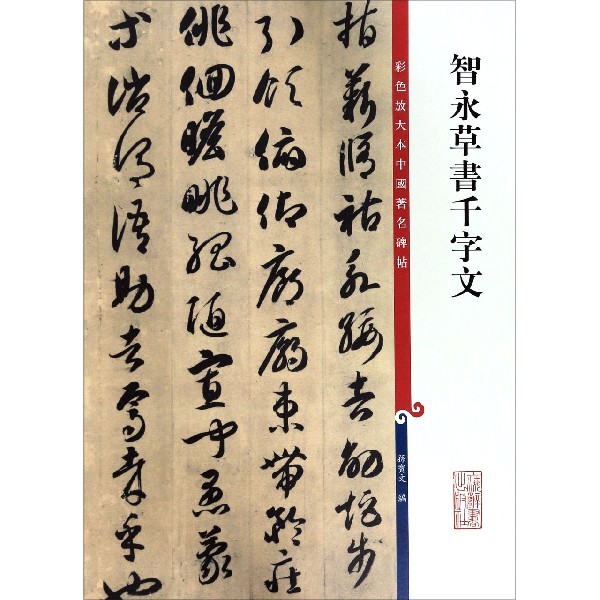 智永草書千字文
彩色放大本中國著名碑帖
孫寶文 編
指薪脩祜永綏吉劭矩步
引領俯仰廊廟束帶矜莊
俳佪瞻眺孤陋寡聞愚蒙
等誚謂語助者焉哉乎也